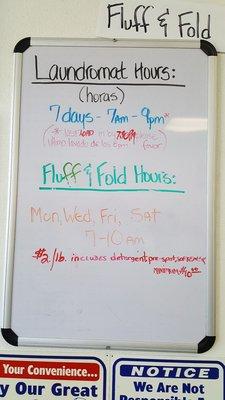 Fluff & Fold
Laundromat Hours:
(horas)
7 days - 7am - 9pm*
(* last load in by please
Ultimo lavado de las 8pm favor)
Fluff & Fold Hours:
Mon, Wed, Fri, Sat
7-10 am
$2./lb. includes detergent, pre-spot, softener
MINIMUM $10.00
Your Convenience...
y Our Great
NOTICE
We Are Not